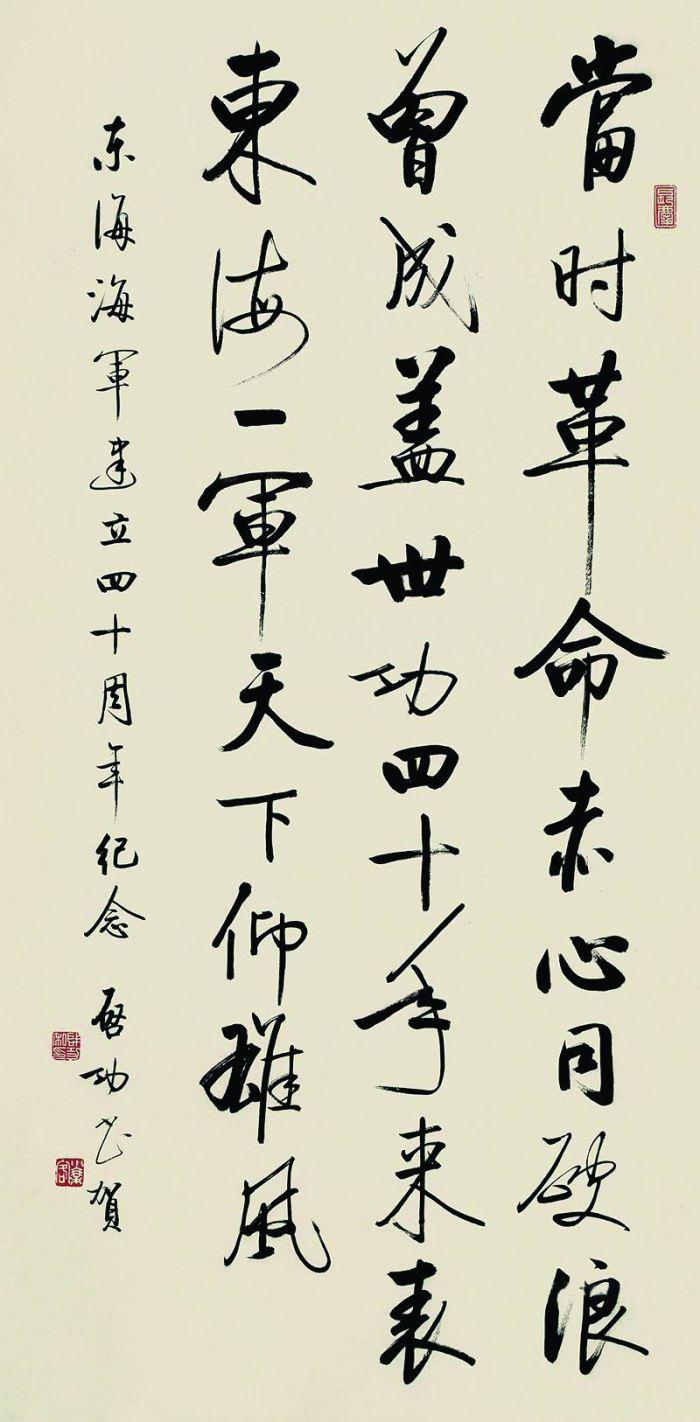 當时革命赤心同破浪
曾成盖世功四十年来表
東海一軍天下仰雄風
东海海軍建立四十周年纪念 启功书賀